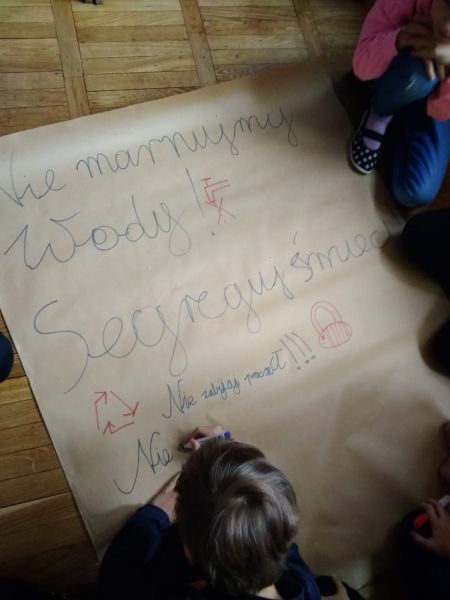 Nie marnujmy
Wody!
Segreguj śmieci
Nie zabijaj pszczół!!!
Nie